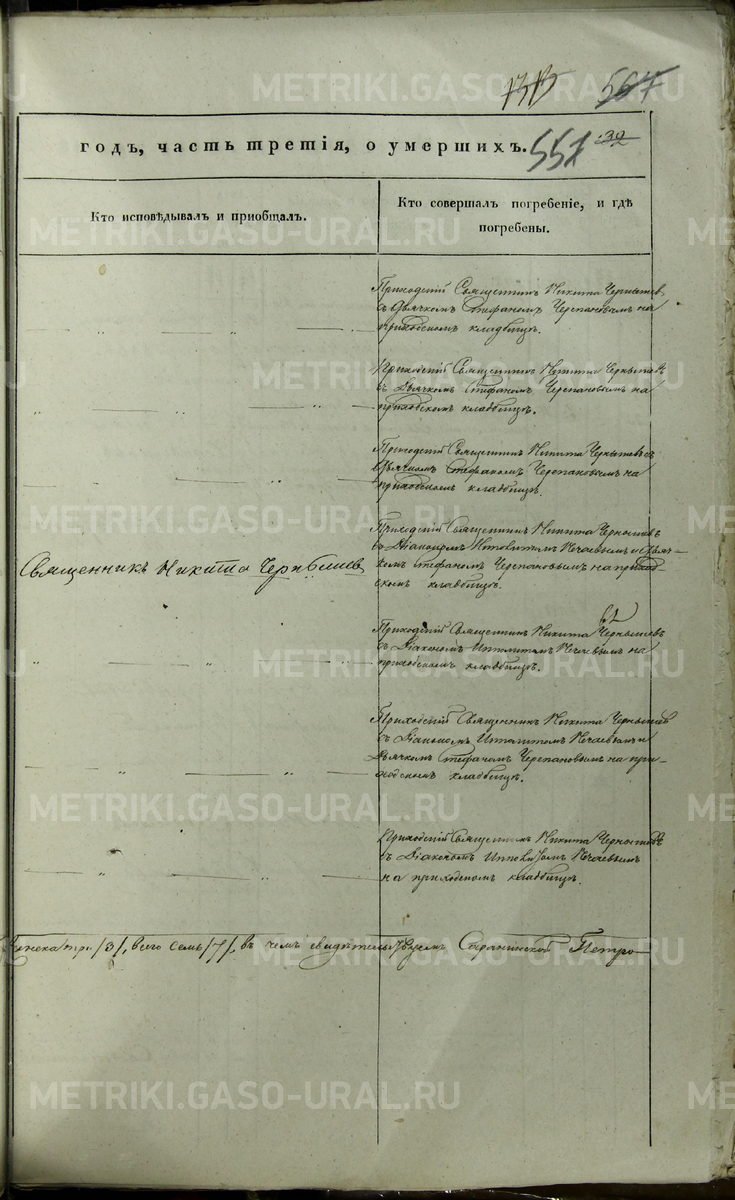 567
годъ, часть третія, о умершихъ.
557
32
Кто исповѣдывалъ и приобщалъ.
Кто совершалъ погребеніе, и гдѣ
погребены.
Приходскій Священникъ Никита Чернышев,
съ Дьячкомъ Стефаномъ Черепановымъ на
приходскомъ кладбищѣ.
Приходскій Священникъ Никита Чернышевъ
съ Дьячкомъ Стефаномъ Черепановымъ на
приходскомъ кладбищѣ.
Приходскій Священникъ Никита Чернышевъ с
Дьячкомъ Стефаномъ Черепановымъ на
приходскомъ кладбищѣ.
Священникъ Никита Чернышевъ
Приходскій Священникъ Никита Чернышевъ
съ Діакономъ Ипполитомъ Нечаевымъ и Дьяч-
комъ Стефаномъ Черепановымъ на приход-
скомъ кладбищѣ.
Приходскій Священникъ Никита Чернышевъ
съ Діакономъ Ипполитомъ Нечаевымъ на
приходскомъ кладбищѣ.
Приходскій Священникъ Никита Чернышев
съ Діакономъ Ипполитомъ Нечаевымъ и
Дьячкомъ Стефаномъ Черепановымъ на при-
ходскомъ кладбищѣ.
Приходскій Священникъ Никита Чернышевъ
съ Діакономъ Ипполитомъ Нечаевымъ
на приходскомъ кладбищѣ.
женска три /3/, всего семь /7/, въ чемъ свидѣтельствуемъ Саранинской Петро
METRIKI.GASO-URAL.RU